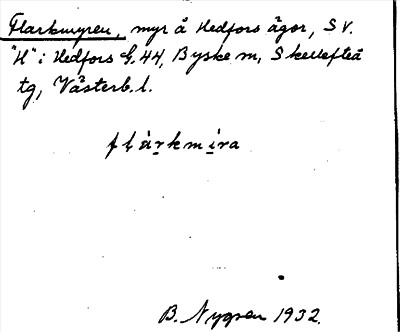 Flarkmyren, myr å Hedfors ägor, S V.
"H" i Hedfors G. 44, Byske sn, Skellefteå
tg, Västerb. l.
flàrkmíra
B. Nygren 1932.